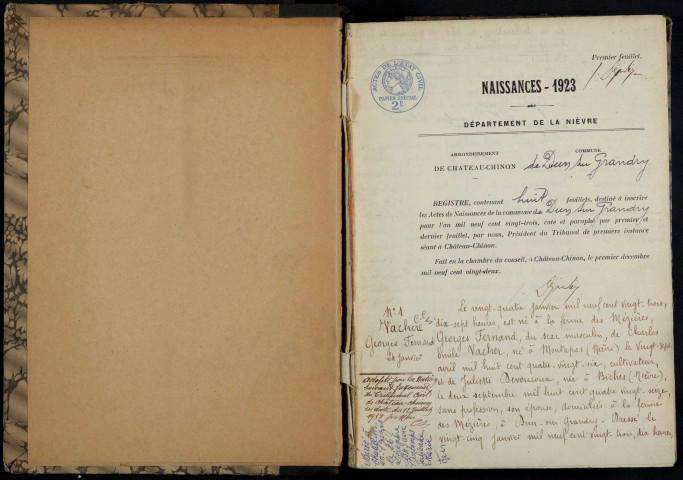 Premier feuillet.
ACTES DE L'ÉTAT CIVIL
PAPIER SPÉCIAL
2F
NAISSANCES - 1923
DÉPARTEMENT DE LA NIÈVRE
ARRONDISSEMENT
COMMUNE
DE CHATEAU-CHINON
de Dun sur Grandry
REGISTRE, contenant huit feuillets, destiné à inscrire
les Actes de Naissances de la commune de Dun sur Grandry
pour l'an mil neuf cent vingt-trois, coté et paraphé par premier et
dernier feuillet, par nous, Président du Tribunal de première instance
séant à Château-Chinon.
Fait en la chambre du conseil, à Château-Chinon, le premier décembre
mil neuf cent vingt-deux.
N° 1
Vacher
Georges Fernand
24 Janvier
Le vingt-quatre janvier mil neuf cent vingt-trois,
dix-sept heures, est né à la ferme des Mézières,
Georges Fernand, du sexe masculin, de Charles
Emile Vacher, né à Montapas (Nièvre) le vingt-sept
avril mil huit cent quatre-vingt-six, cultivateur,
et de Juliette Devoucoux, née à Biches (Nièvre),
le deux septembre mil huit cent quatre-vingt-seize,
sans profession, son épouse, domiciliés à la ferme
des Mézières, à Dun-sur-Grandry. Dressé le
vingt-cinq janvier mil neuf cent vingt-trois, dix heures,
Adopté par la Nation
suivant jugement
du Tribunal Civil
de Château-Chinon
en date du 12 Juillet